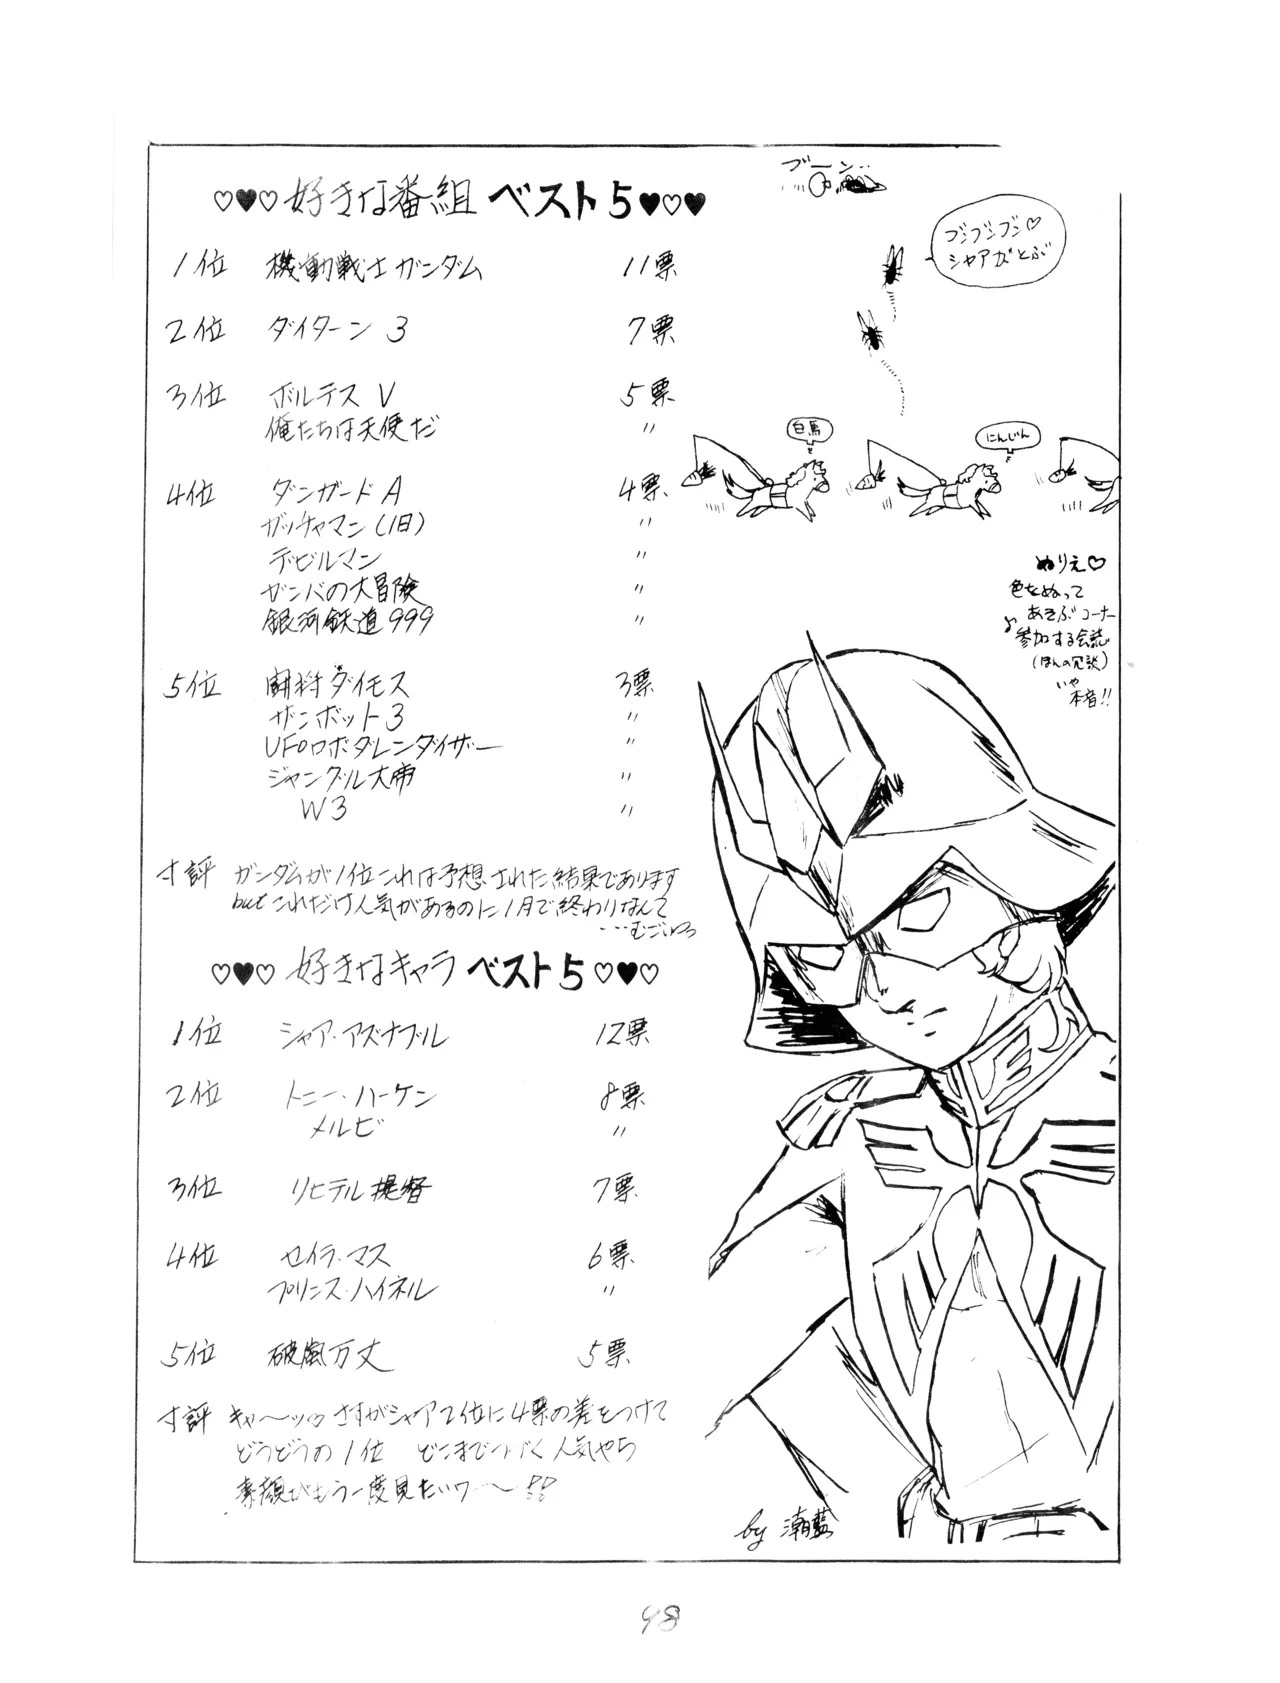 ♡♥♡ 好きな番組 ベスト5 ♥♡♥
1位 機動戦士ガンダム 11票
2位 ダイターン3 7票
3位 ボルテスV 5票
俺たちは天使だ 〃
4位 ダンガードA 4票
ガッチャマン(旧) 〃
デビルマン 〃
ガンバの大冒険 〃
銀河鉄道999 〃
5位 闘将ダイモス 3票
ザンボット3 〃
UFOロボグレンダイザー 〃
ジャングル大帝 〃
W3 〃
寸評 ガンダムが1位これは予想された結果であります
butこれだけ人気があるのに1月で終わりなんて
…むごいわっ
♡♥♡ 好きなキャラ ベスト5 ♡♥♡
1位 シャア・アズナブル 12票
2位 トニー・ハーケン 8票
メルビ 〃
3位 リヒテル提督 7票
4位 セイラ・マス 6票
プリンス・ハイネル 〃
5位 破嵐万丈 5票
寸評 キャ〜ッ♡さすがシャア2位に4票の差をつけて
どうどうの1位 どこまでつづく人気やら
素顔がもう一度見たいワ〜!!
ブーン‥
ブンブンブン♡
シャアがとぶ
白馬
にんじん
ぬりえ♡
色をぬって
あそぶコーナー
参加する会誌
(ほんの冗談)
いや
本音!!
by 潮藍
48